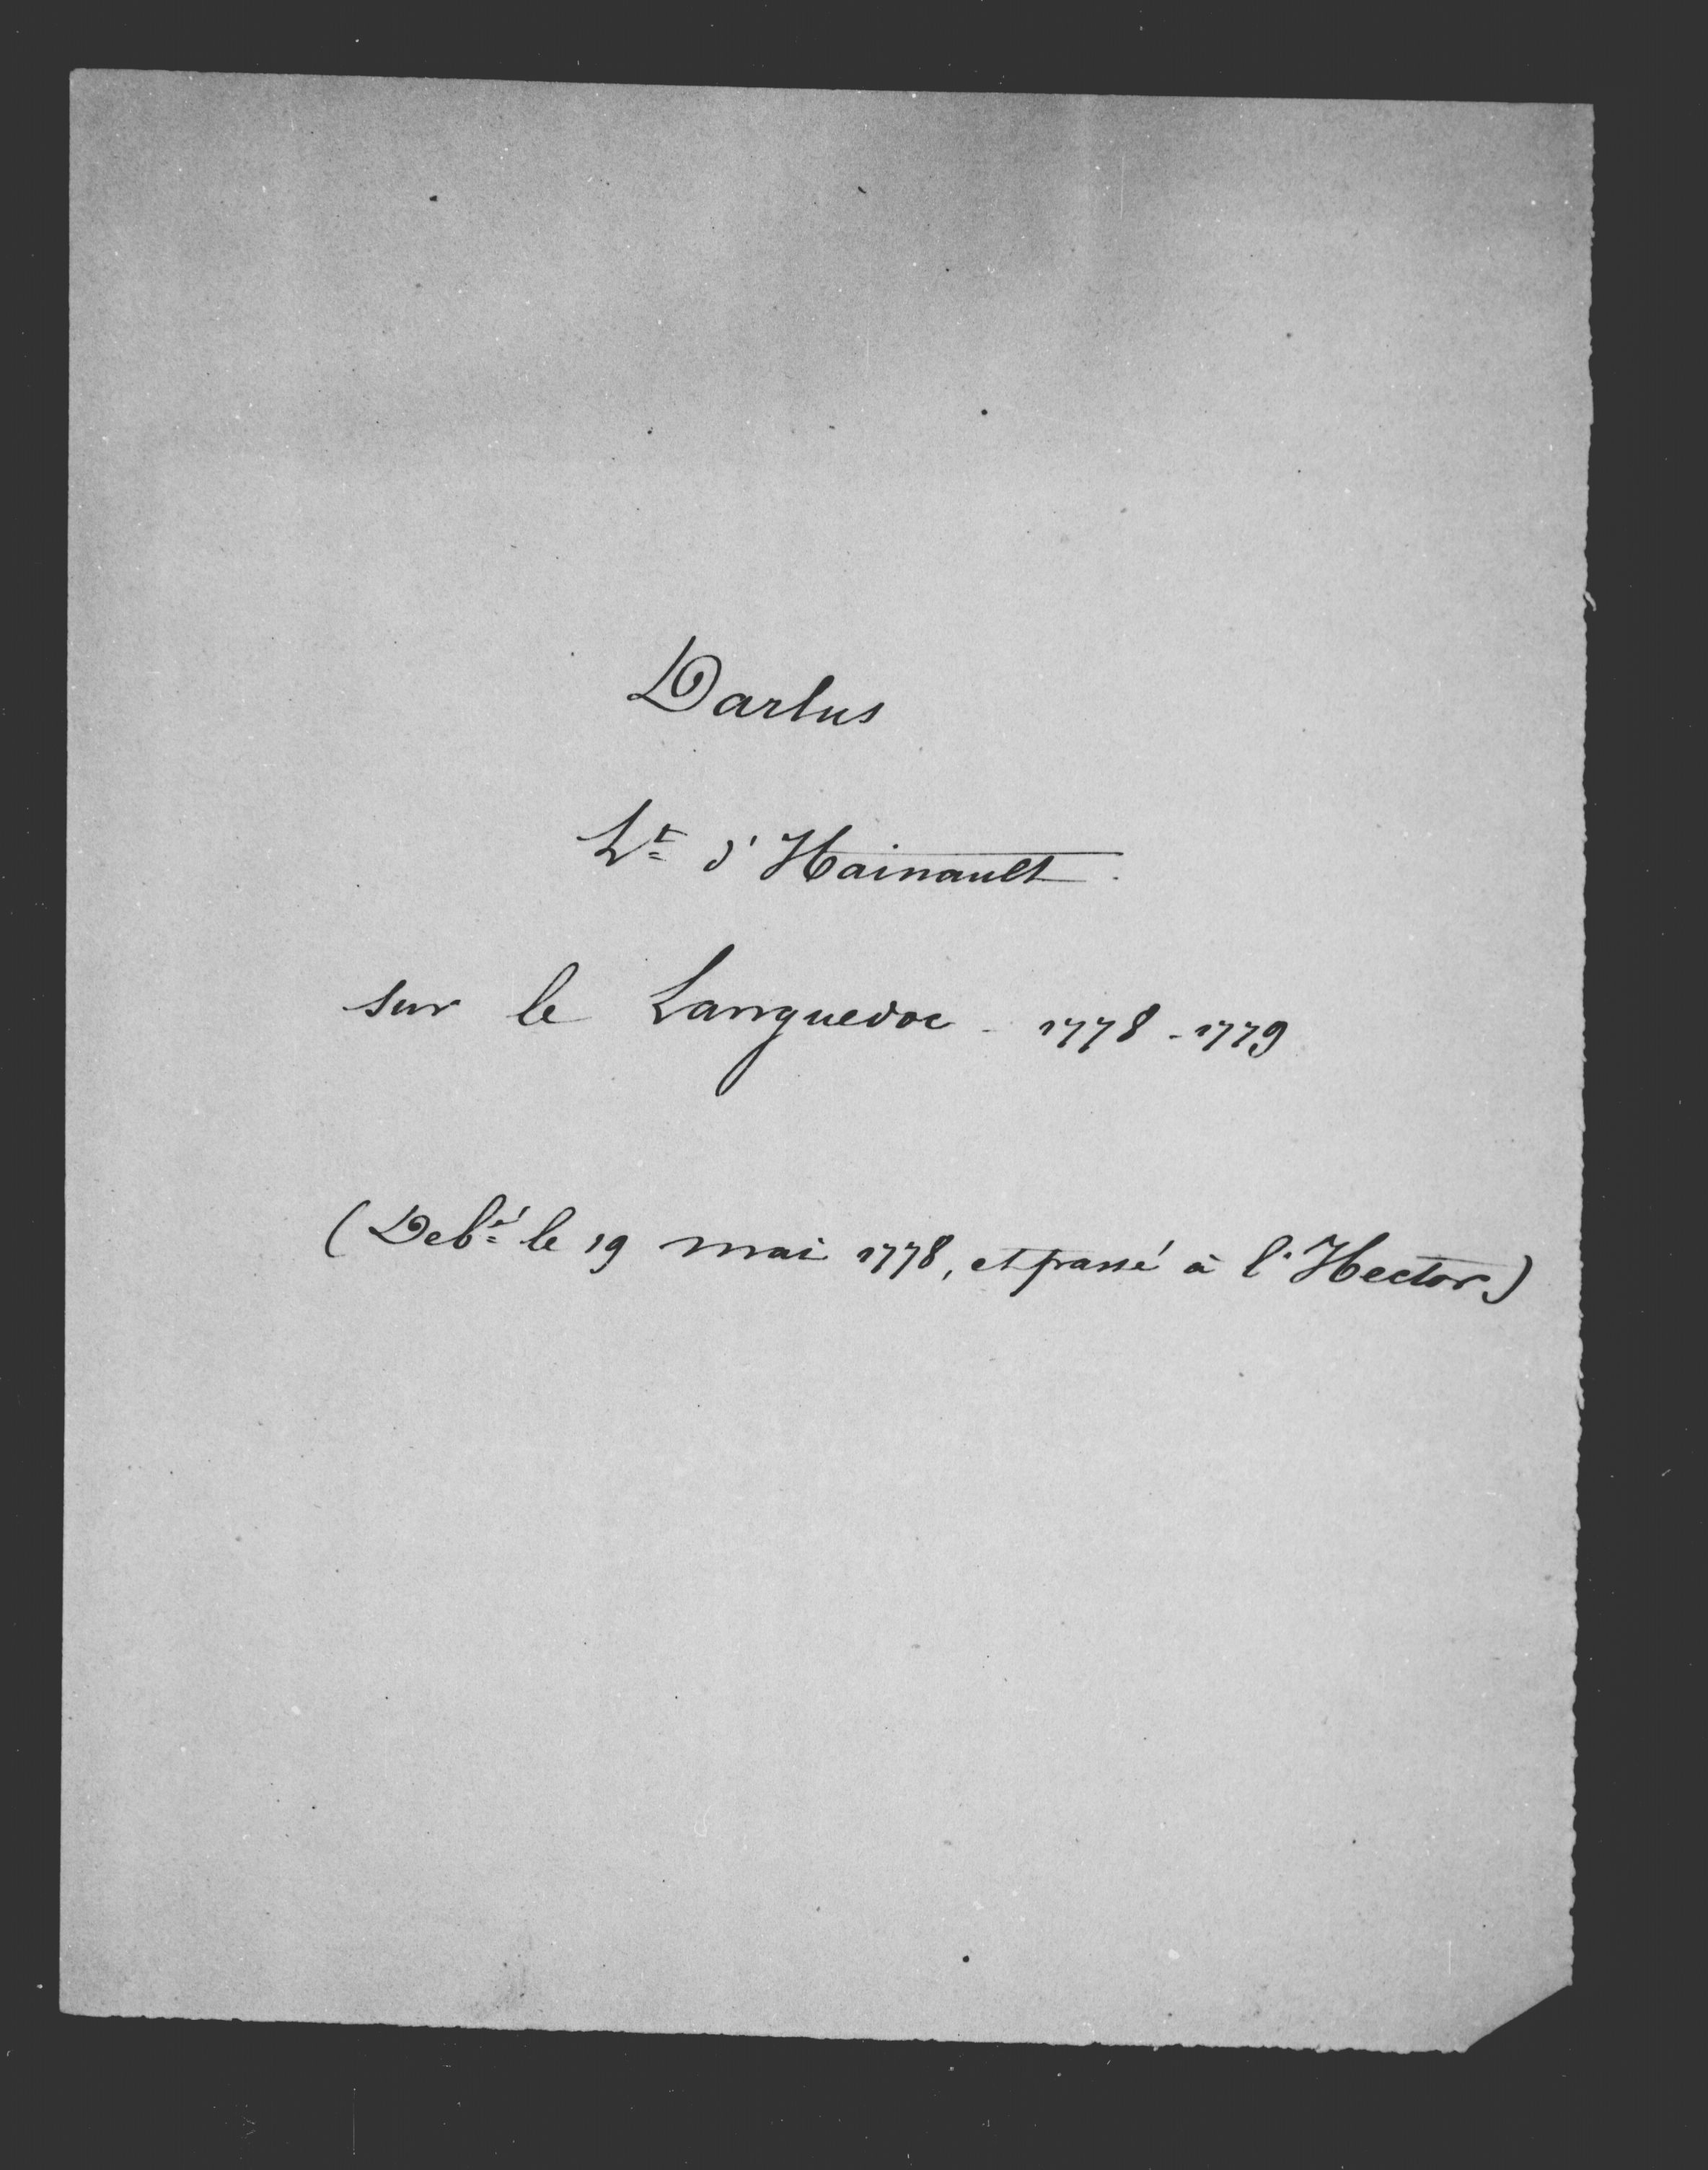 Darlus
Lt d'Hainault.
sur le Languedoc - 1778 - 1779
(Debé le 19 mai 1778, et passé à l'Hector)